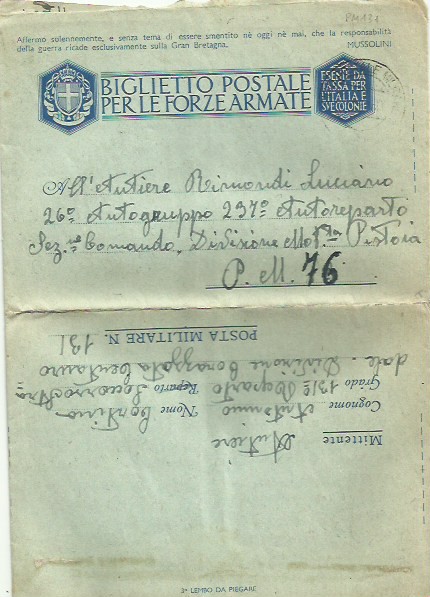 PM 131
Affermo solennemente, e senza tema di essere smentito nè oggi nè mai, che la responsabilità
della guerra ricade esclusivamente sulla Gran Bretagna. MUSSOLINI
BIGLIETTO POSTALE
PER LE FORZE ARMATE
ESENTE DA
TASSA PER
L'ITALIA E
SUE COLONIE
All'Autiere Rimondi Luciano
26º Autogruppo 237º Autoreparto
Sez.ne Comando, Divisione Mot.ta Pistoia
P.M. 76
Mittente Autiere
Cognome Antonino Nome Cortino
Grado 131º Reparto Reparto
dale. Divisione Corazzata Centauro
POSTA MILITARE N. 131
3º LEMBO DA PIEGARE